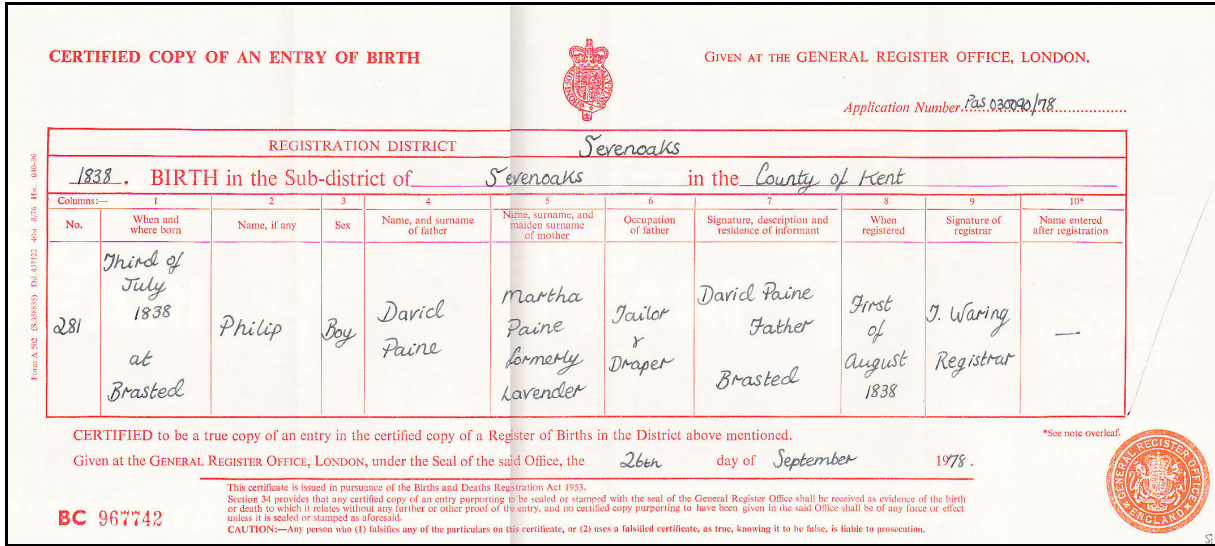 CERTIFIED COPY OF AN ENTRY OF BIRTH
GIVEN AT THE GENERAL REGISTER OFFICE, LONDON.
Application Number Pas 030090/78
REGISTRATION DISTRICT Sevenoaks
1838. BIRTH in the Sub-district of Sevenoaks in the County of Kent
Columns:— 1 2 3 4 5 6 7 8 9 10*
No.
When and
where born
Name, if any
Sex
Name, and surname
of father
Name, surname, and
maiden surname
of mother
Occupation
of father
Signature, description and
residence of informant
When
registered
Signature of
registrar
Name entered
after registration
281
Third of
July
1838
at
Brasted
Philip
Boy
David
Paine
Martha
Paine
formerly
Lavender
Tailor
&
Draper
David Paine
Father
Brasted
First
of
August
1838
J. Waring
Registrar
—
CERTIFIED to be a true copy of an entry in the certified copy of a Register of Births in the District above mentioned.
*See note overleaf.
Given at the GENERAL REGISTER OFFICE, LONDON, under the Seal of the said Office, the 26th day of September 1978.
This certificate is issued in pursuance of the Births and Deaths Registration Act 1953.
Section 34 provides that any certified copy of an entry purporting to be sealed or stamped with the seal of the General Register Office shall be received as evidence of the birth
or death to which it relates without any further or other proof of the entry, and no certified copy purporting to have been given in the said Office shall be of any force or effect
unless it is sealed or stamped as aforesaid.
CAUTION:—Any person who (1) falsifies any of the particulars on this certificate, or (2) uses a falsified certificate, as true, knowing it to be false, is liable to prosecution.
BC 967742
GENERAL REGISTER OFFICE
ENGLAND